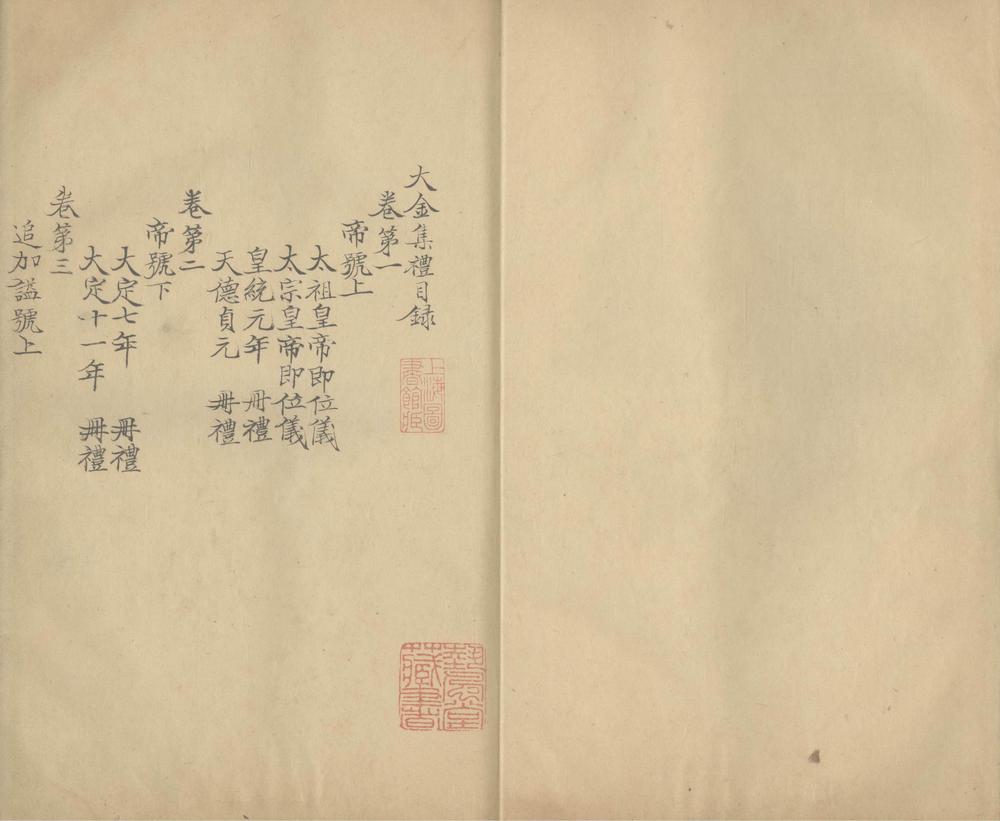 大金集禮目録
卷第一
帝號上
太祖皇帝即位儀
太宗皇帝即位儀
皇統元年 冊禮
天德貞元 冊禮
卷第二
帝號下
大定七年 冊禮
大定十一年 冊禮
卷第三
追加謚號上
上海圖書館藏